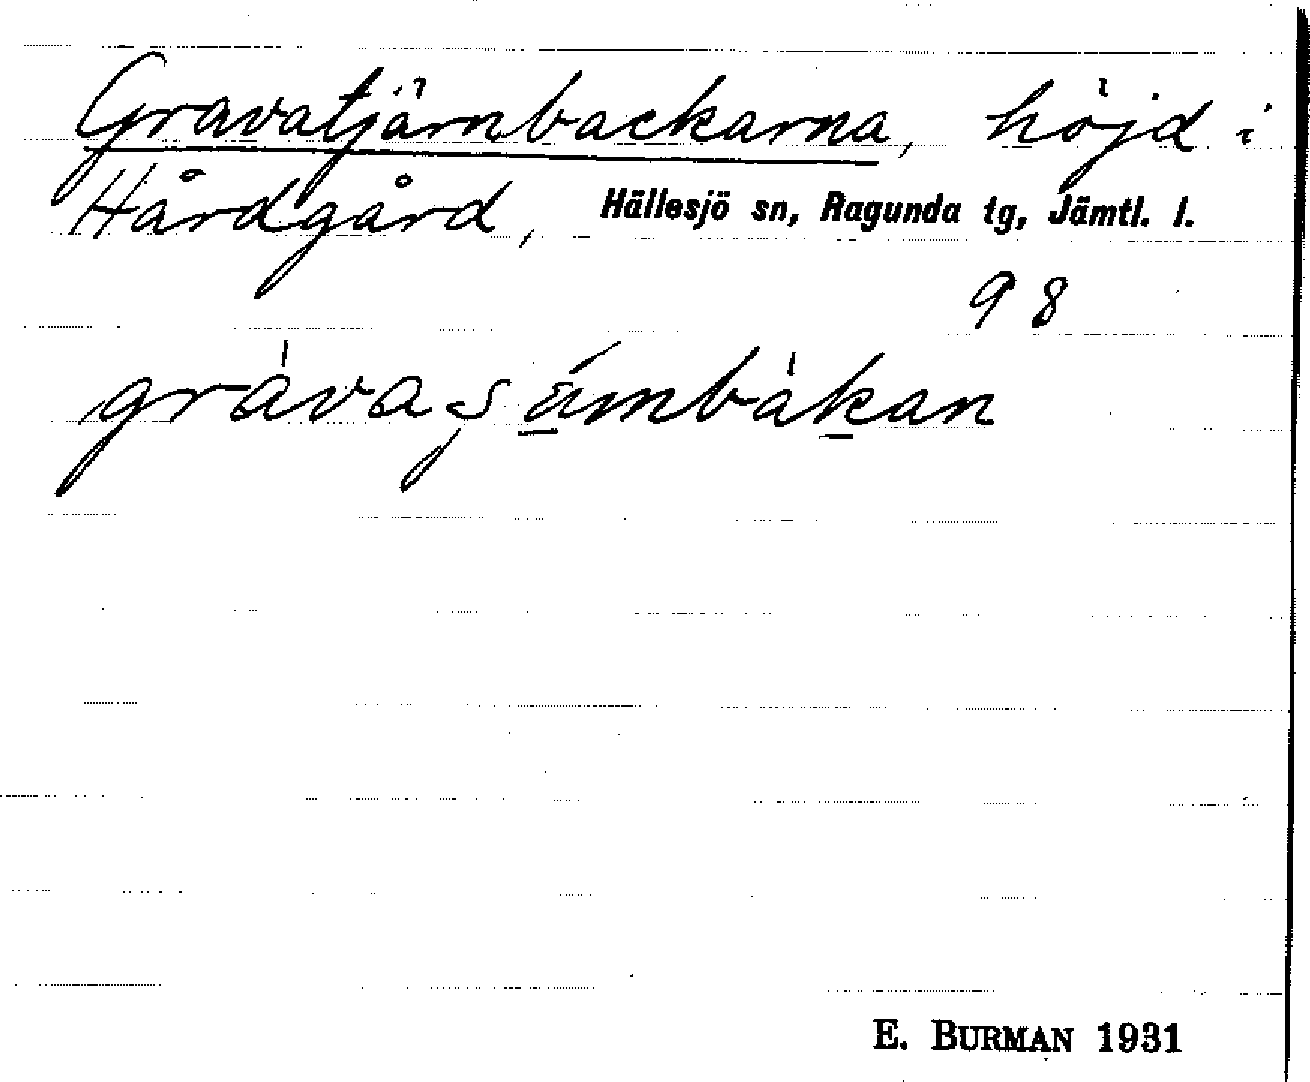 Gravatjärnbackarna, höjd i
Hårdgård, Hällesjö sn, Ragunda tg, Jämtl. l.
98
E. BURMAN 1931